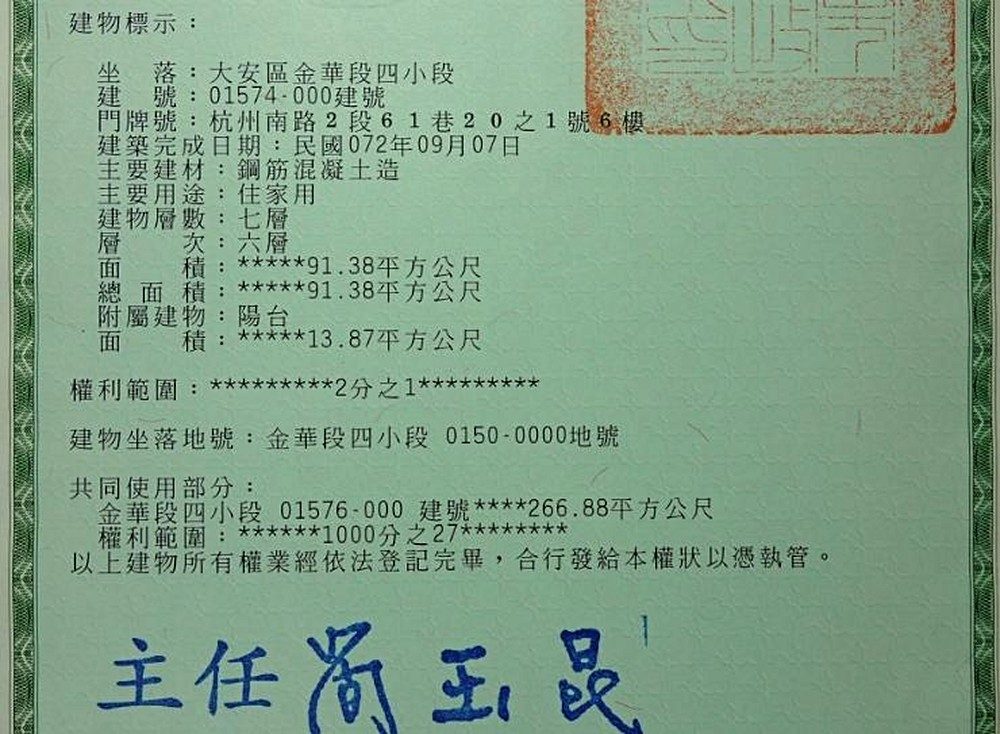 建物標示：
坐　落：大安區金華段四小段
建　號：01574-000建號
門牌號：杭州南路2段61巷20之1號6樓
建築完成日期：民國072年09月07日
主要建材：鋼筋混凝土造
主要用途：住家用
建物層數：七層
層　　次：六層
面　　積：*****91.38平方公尺
總 面 積：*****91.38平方公尺
附屬建物：陽台
面　　積：*****13.87平方公尺
權利範圍：*********2分之1*********
建物坐落地號：金華段四小段 0150-0000地號
共同使用部分：
金華段四小段 01576-000 建號****266.88平方公尺
權利範圍：******1000分之27********
以上建物所有權業經依法登記完畢，合行發給本權狀以憑執管。
主任 玉昆